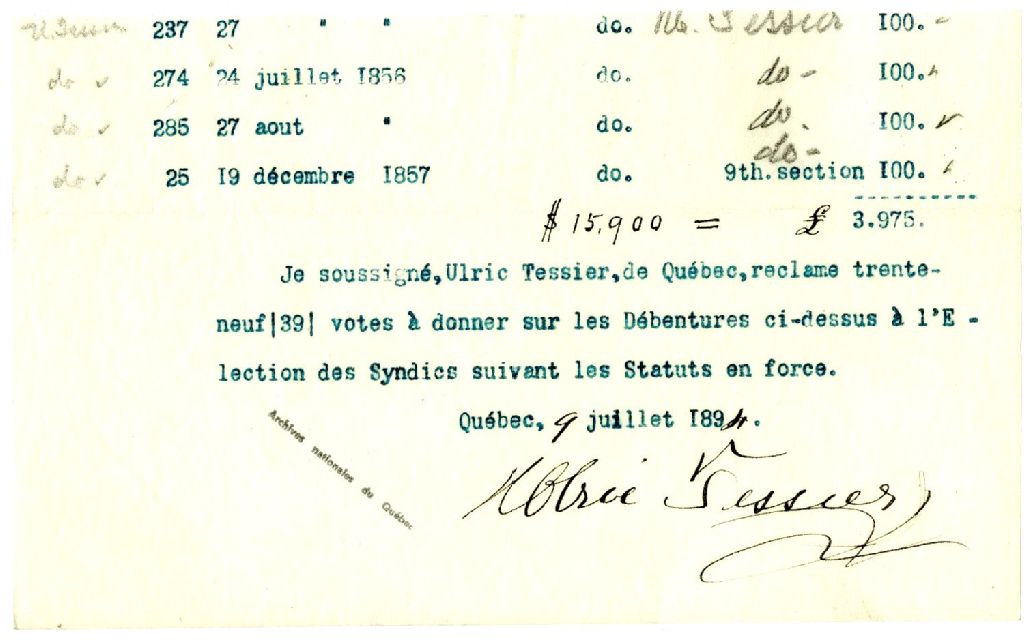 U. Tessier 237 27 " " do. U. Tessier I00. -
do ✓ 274 24 juillet I856 do. do - I00. ✓
do ✓ 285 27 aout " do. do. I00. ✓
do -
do ✓ 25 I9 décembre I857 do. 9th.section I00. ✓
$ 15,900 = £ 3.975.
Je soussigné,Ulric Tessier,de Québec,reclame trente-
neuf|39| votes à donner sur les Débentures ci-dessus à l'E -
lection des Syndics suivant les Statuts en force.
Québec, 9 juillet I894.
Ulric Tessier
Archives nationales du Québec